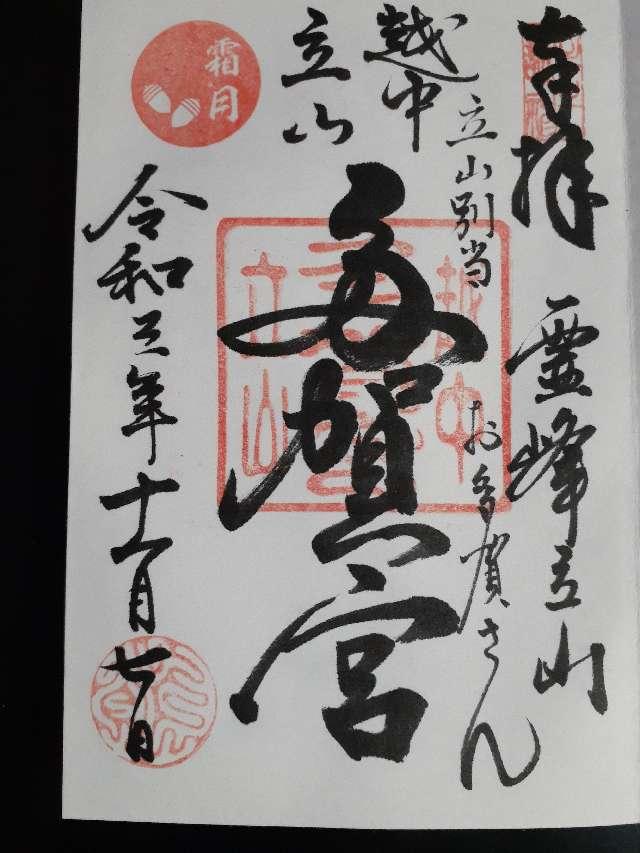 奉拝
霊峰立山
立山別当
お多賀さん
越中
立山
多賀宮
越中
立山
霜月
令和三年十一月七日